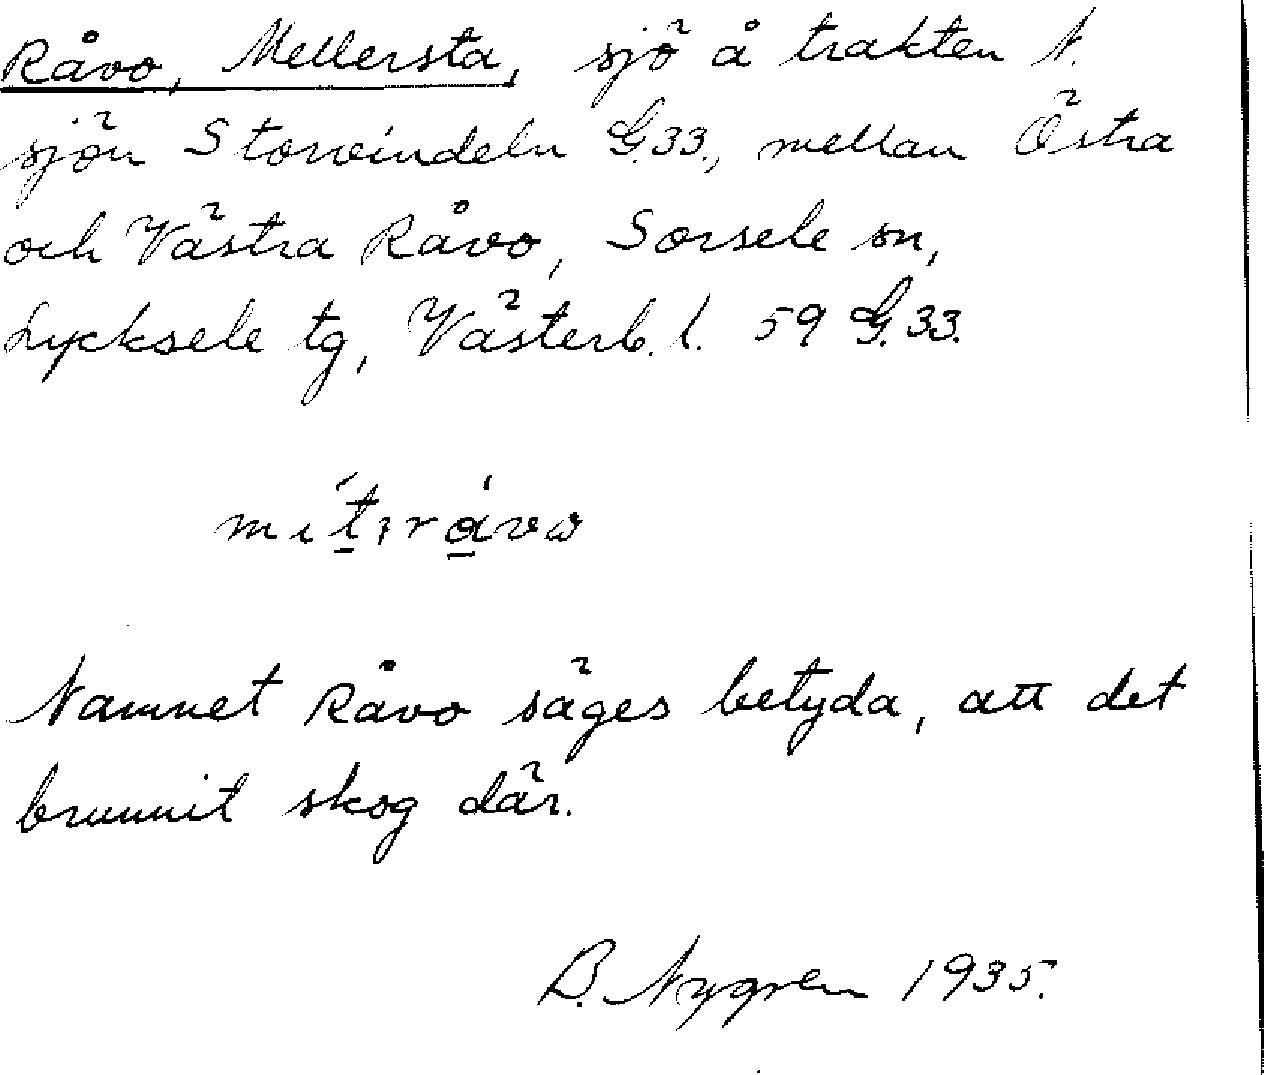 Råvo, Mellersta, sjö å trakten N.
sjön Storvindeln G.33., mellan Östra
och Västra Råvo, Sorsele sn,
Lycksele tg, Västerb. l. 59 G.33.
Namnet Råvo säges betyda, att det
brunnit skog där.
B. Nygren 1935.